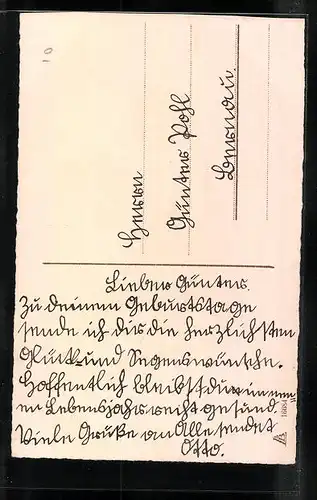 Herrn
Günter Pohl
Bernau.
Lieber Günter.
Zu deinem Geburtstage
sende ich dir die herzlichsten
Glück- und Segenswünsche.
Hoffentlich bleibst du im neu
en Lebensjahr recht gesund.
Viele Grüße an Alle sendet
Otto.